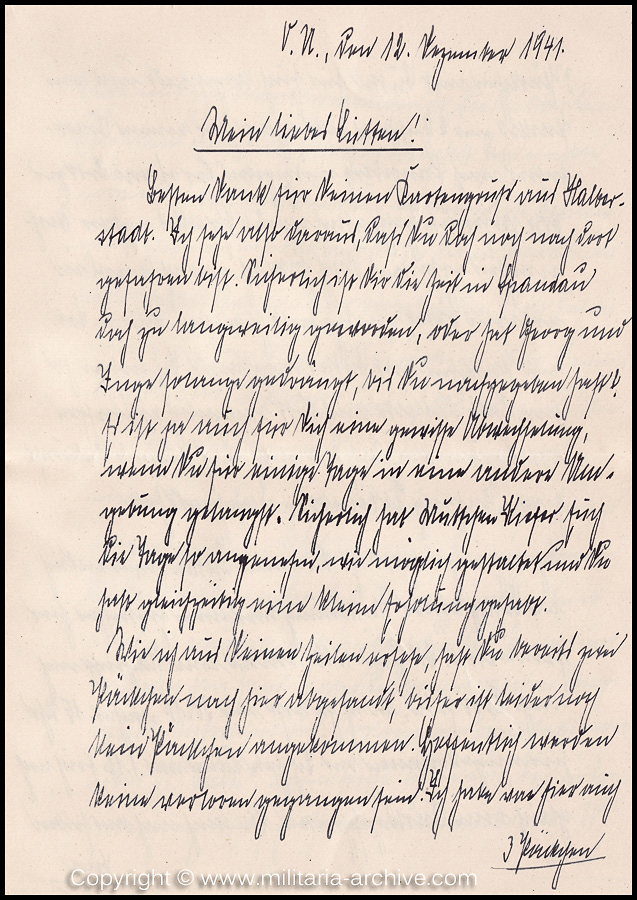 O. U., den 12. Dezember 1941.
Mein liebes Lutten!
Besten Dank für Deinen Kartengruß aus Halber-
stadt. Ich sehe also daraus, daß Du doch noch nach dort
gefahren bist. Sicherlich ist Dir die Zeit in Spandau
doch zu langweilig geworden, oder hat Georg und
Inge solange gedrängt, bis Du nachgegeben hast?
Es ist ja auch für Dich eine gewisse Abwechselung,
wenn Du für einige Tage in eine andere Um-
gebung gelangst. Sicherlich hat Muttchen Euch
die Tage so angenehm, wie möglich gestaltet und Du
hast gleichzeitig eine kleine Erholung gehabt.
Wie ich aus Deinen Zeilen ersehe, hast Du bereits zwei
Päckchen nach hier abgesandt, bisher ist leider noch
kein Päckchen angekommen. Hoffentlich werden
keine verloren gegangen sein. Ich habe von hier auch
3 Päckchen
Copyright © www.militaria-archive.com